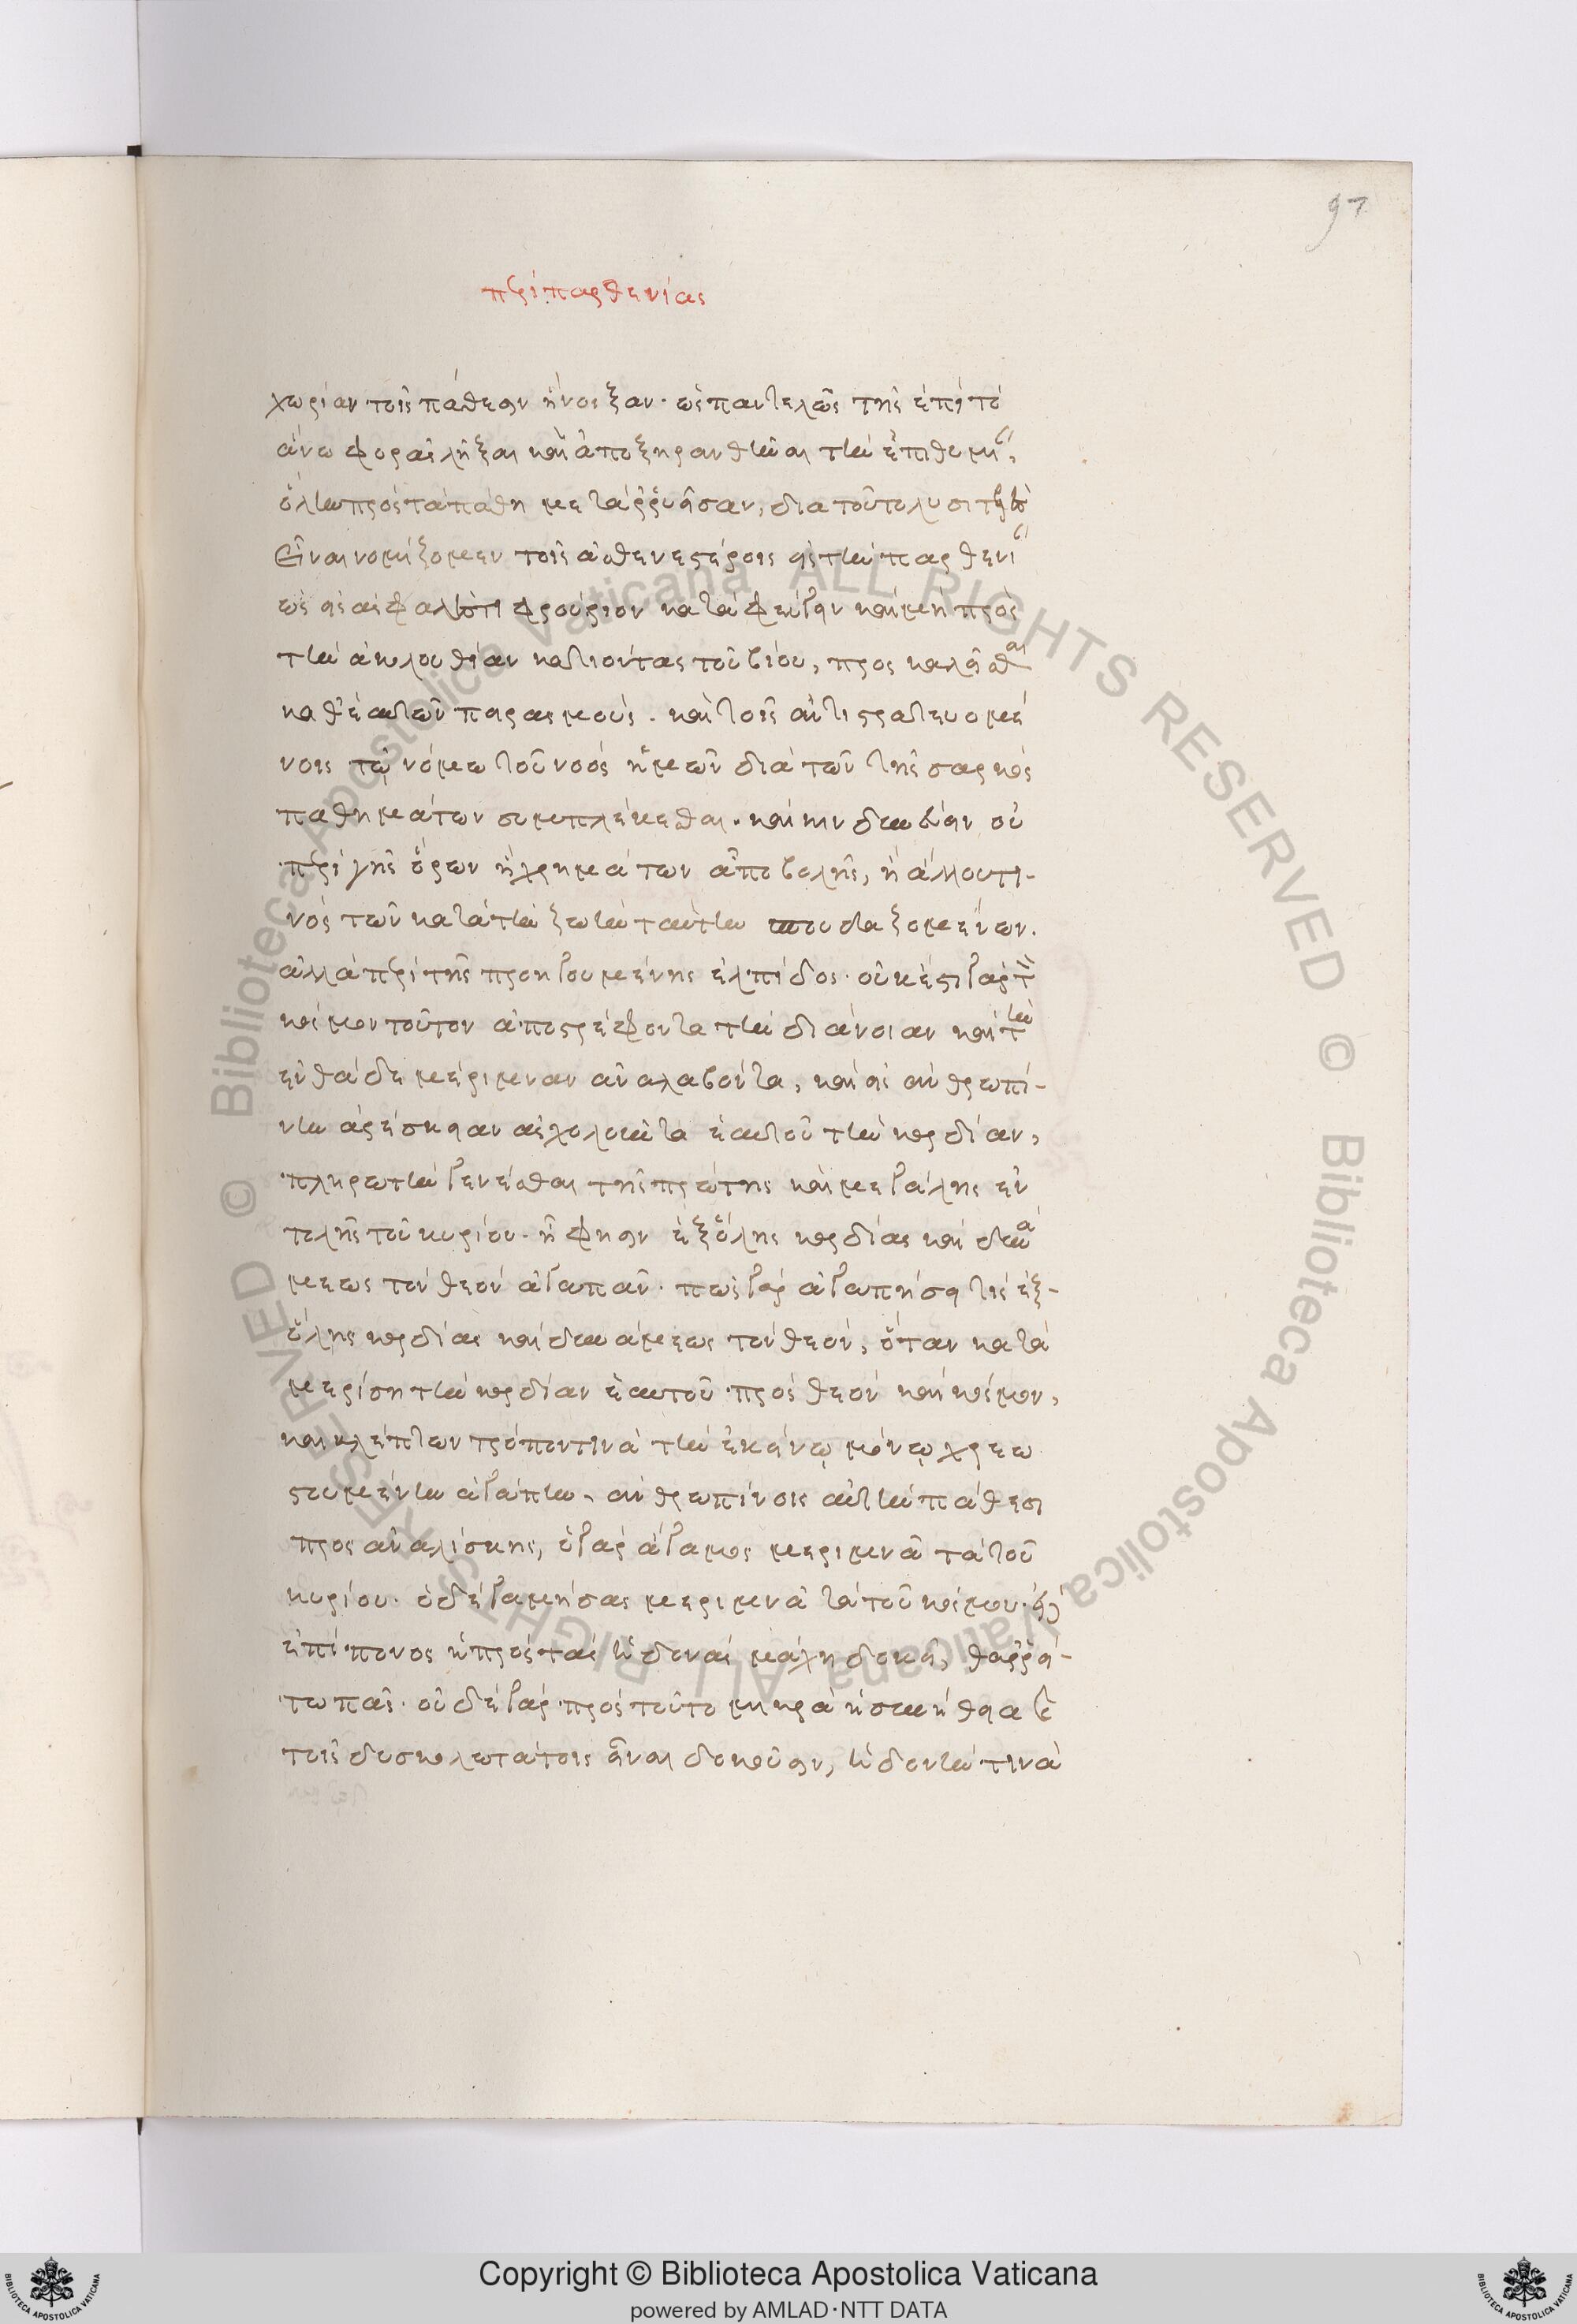 97
περὶ παρθενίας
χωρίαν τοῖς πάθεσιν ἤνοιξαν. ὡς παντελῶς τῆς ἐπὶ τὸ
ἄνω φορᾶς λῆξαι καὶ ἀποξηρανθῆναι τὴν ἐπιθυμί,
ὅλην πρὸς τὰ πάθη μεταρρυεῖσαν, διατοῦτο λυσιτελὲς
εἶναι νομίζομεν τοῖς ἀσθενεστέροις εἰς τὴν παρθενί
ὡς εἰς ἀσφαλές τι φρούριον καταφεύγειν καὶ μὴ πρὸς
τὴν ἀκολουθίαν κατιόντας τοῦ βίου, προσκαλεῖσθαι
καθ' ἑαυτῶν πειρασμούς. καὶ τοῖς ἀντιστρατευομέ
νοις τῷ νόμω τοῦ νοὸς ἡμῶν διὰ τῶν τῆς σαρκὸς
παθημάτων συμπλέκεσθαι. καὶ κινδυνεύειν οὐ
περὶ γῆς ὅρων ἢ χρημάτων ἀποβολῆς, ἢ ἄλλου τι-
νὸς τῶν κατὰ τὴν ζωὴν ταύτην σπουδαζομένων.
ἀλλὰ περὶ τῆς προηγουμένης ἐλπίδος. οὐκ ἔστι γὰρ τὸν
κόσμον τοῦτον ἀποστρέφοντα τὴν διάνοιαν καὶ τὴν
ἐνθάδε μέριμναν ἀναλαβόντα, καὶ εἰς ἀνθρωπί-
νην ἀρέσκειαν ἀσχολοῦντα ἑαυτοῦ τὴν καρδίαν,
πληρωτὴν γενέσθαι τῆς πρώτης καὶ μεγάλης ἐν
τολῆς τοῦ κυρίου. ἥ φησιν ἐξ ὅλης καρδίας καὶ δυνά
μεως τὸν θεὸν ἀγαπᾶν. πῶς γὰρ ἀγαπήσει τις ἐξ-
ὅλης καρδίας καὶ δυνάμεως τὸν θεόν, ὅταν κατα
μερίση τὴν καρδίαν ἑαυτοῦ πρὸς θεὸν καὶ κόσμον,
καὶ κλέπτων τρόπον τινὰ τὴν ἐκείνῳ μόνῳ χρεω
στουμένην ἀγάπην, ἀνθρωπίνοις αὐτὴν πάθεσι
προσαναλίσκης, ὁ γὰρ ἄγαμος μεριμνᾶ τὰ τοῦ
κυρίου. ὁ δὲ γαμήσας μεριμνᾶ τὰ τοῦ κόσμου. εἰ δὲ
ἐπίπονος ἡ πρὸς τὰς ἡδονὰς μάχη δοκεῖ, θαρρεί-
τω πᾶς. οὐδὲ γὰρ πρὸς τοῦτο μικρὰ ἡ συνήθεια καὶ
τοῖς δυσκολωτάτοις εἶναι δοκοῦσιν, ἡδονήν τινα
Copyright © Biblioteca Apostolica Vaticana
powered by AMLAD·NTT DATA